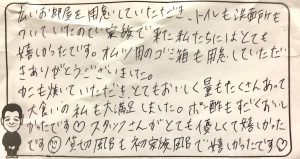 お部屋を用意していただき、トイレも洗面所も
ついていたので家族で来た私たちにはとても
嬉しかったです。オムツ用のゴミ箱も用意していただい
きありがとうございました。
かにも焼いていただき、とてもおいしく量もたくさんあって
大食いの私も大満足しました。ポン酢もすごくおいし
かったです♡スタッフさんがとても優しくて嬉しかっ
たです☺貸切風呂も初家族風呂で嬉しかったです♡